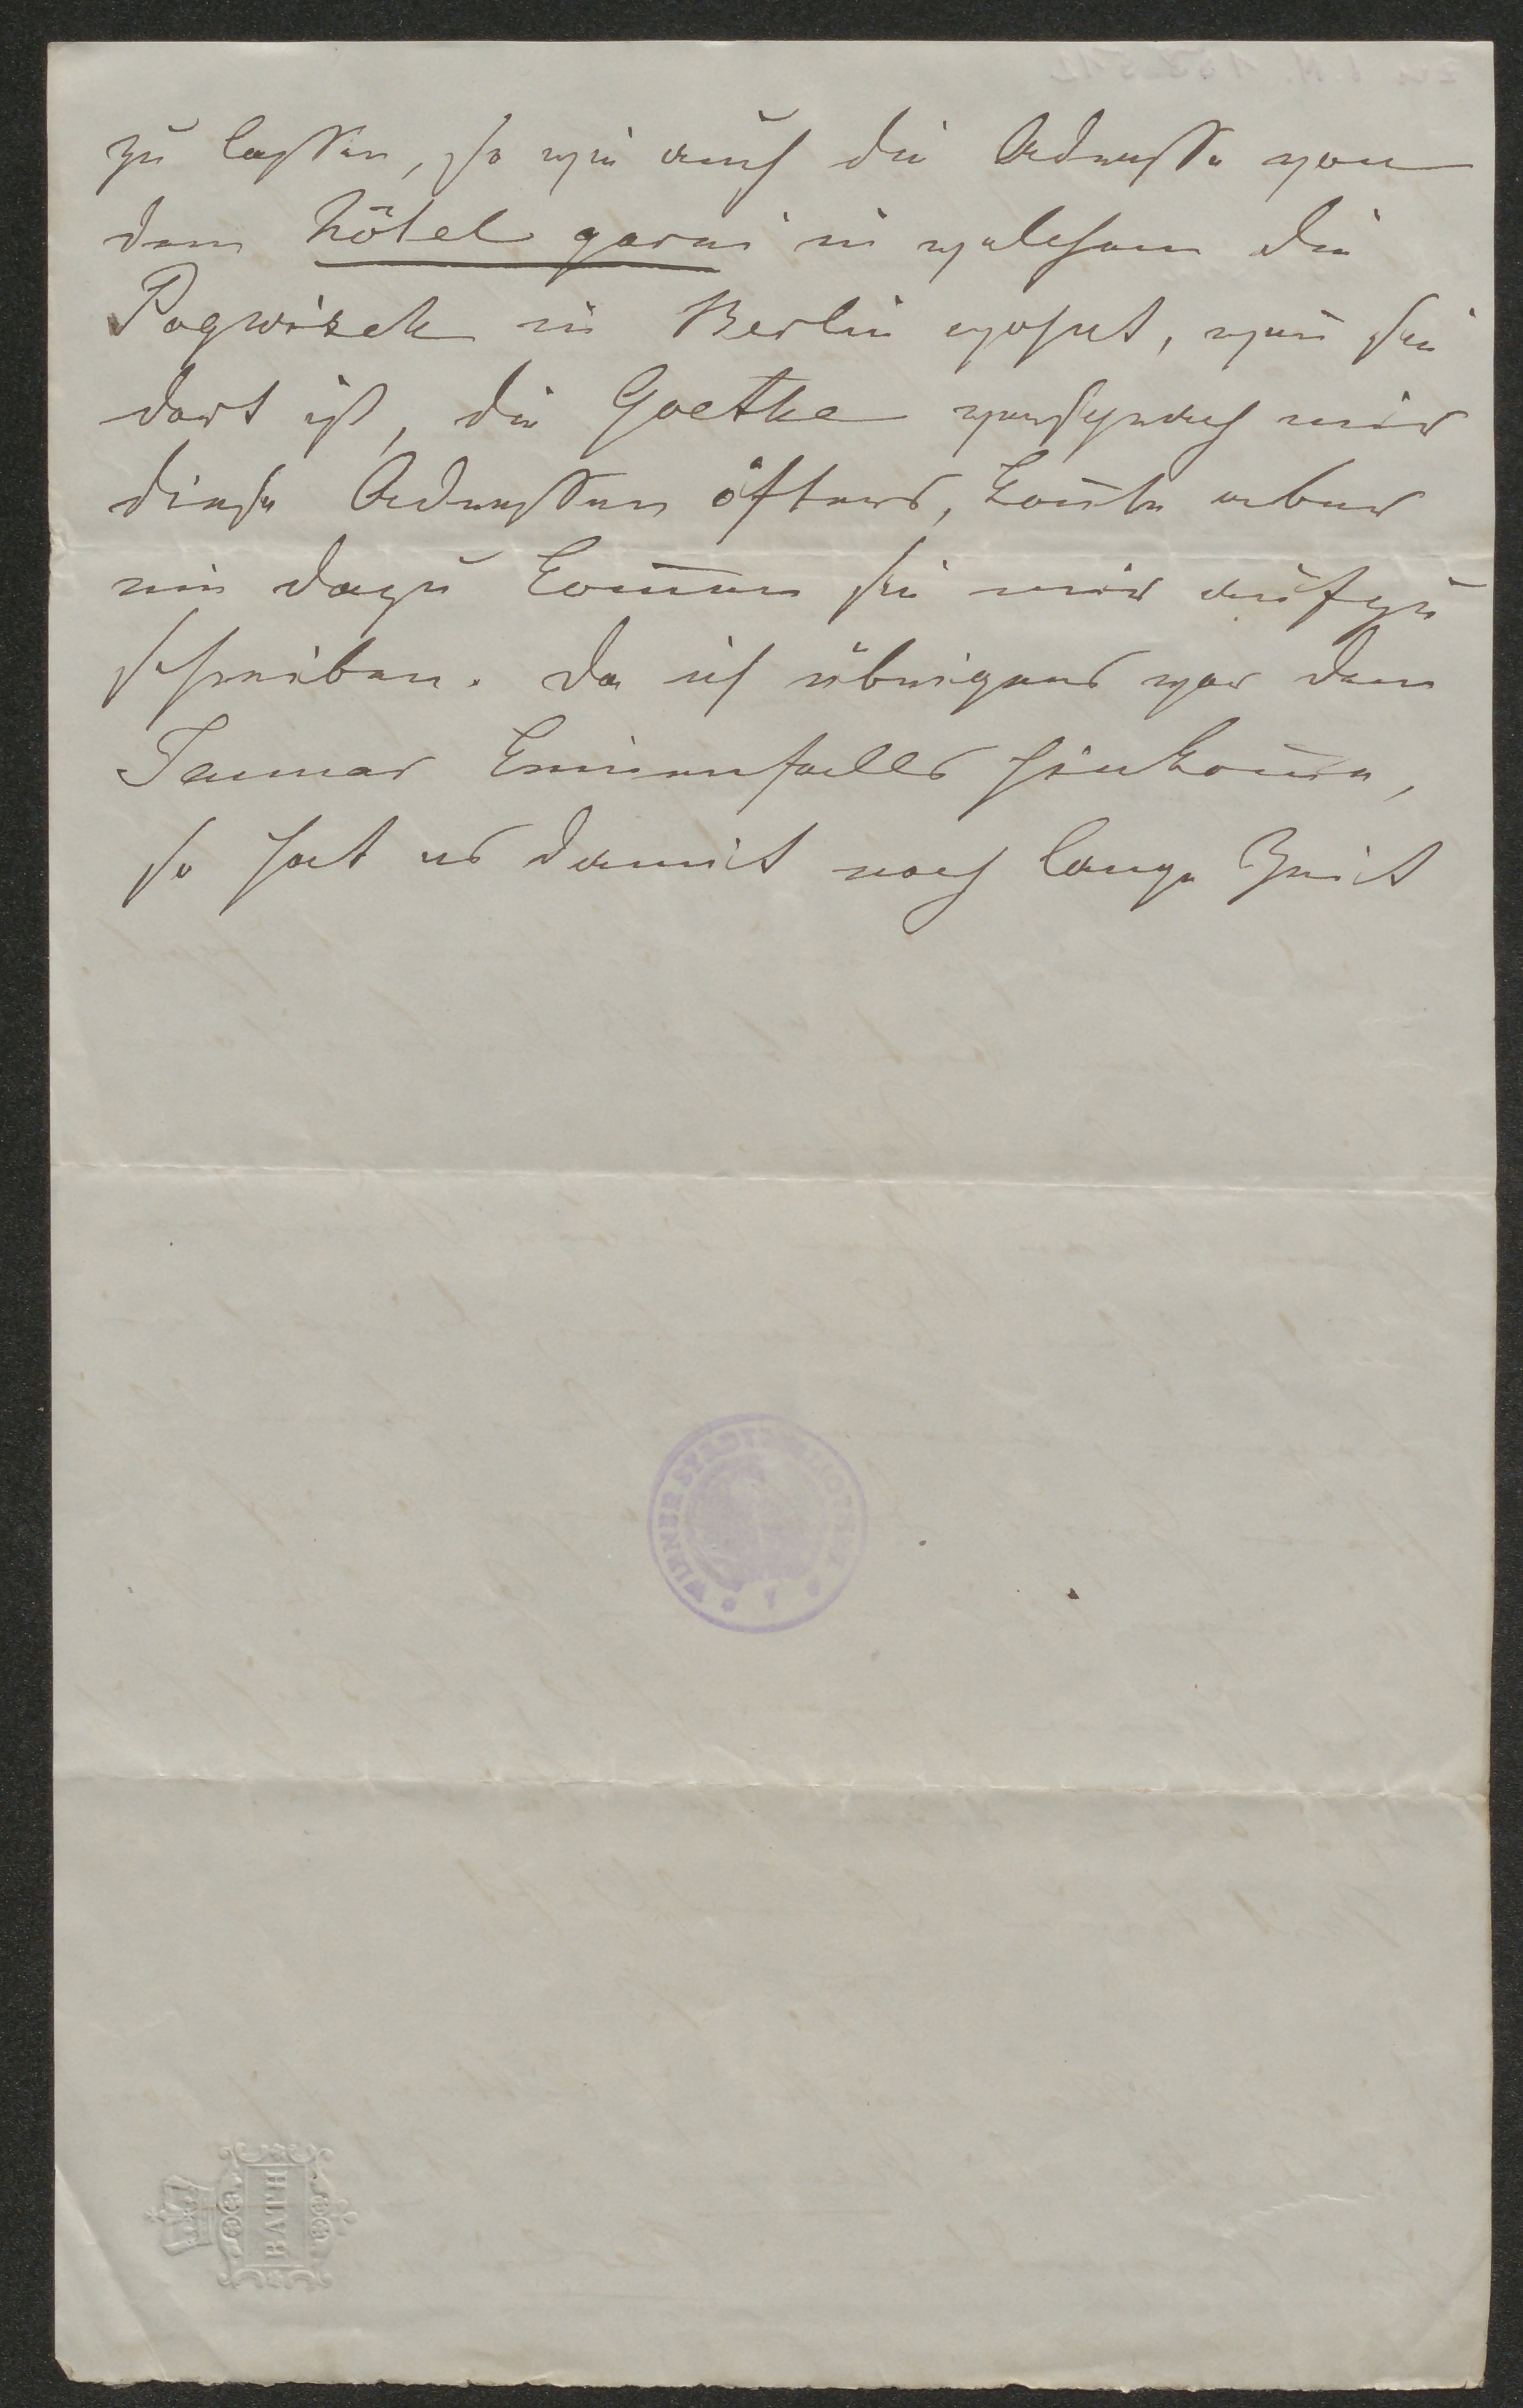 zu lassen, so wie auch die Adresse von
dem hôtel garni in welchem die
Pogwisch in Berlin wohnt, wen̄ sie
dort ist, die Goethe versprach mir
diese Adressen öfters, kon̄te aber
nie dazu kom̄en sie mir aufzu
schreiben. Da ich übrigens vor dem
Januar keinenfalls hinkom̄e,
so hat es damit noch lange Zeit
WIENER STADTBIBLIOTHEK
BATH